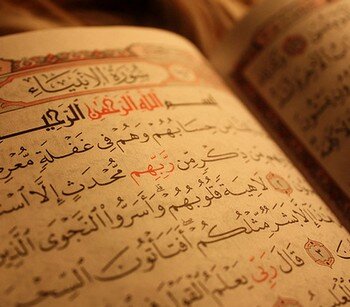 سُورَةُ الأَنبِيَاءِ
بِسْمِ اللَّهِ الرَّحْمَٰنِ الرَّحِيمِ
حِسَابُهُمْ وَهُمْ فِي غَفْلَةٍ مُّعْرِ
مِّن ذِكْرٍ مِّن رَّبِّهِم مُّحْدَثٍ إِلَّا اسْتَ
لَاهِيَةً قُلُوبُهُمْ وَأَسَرُّوا النَّجْوَى الَّذِينَ
هَٰذَا إِلَّا بَشَرٌ مِّثْلُكُمْ أَفَتَأْتُونَ السِّحْرَ
قَالَ رَبِّي يَعْلَمُ الْقَوْلَ فِي